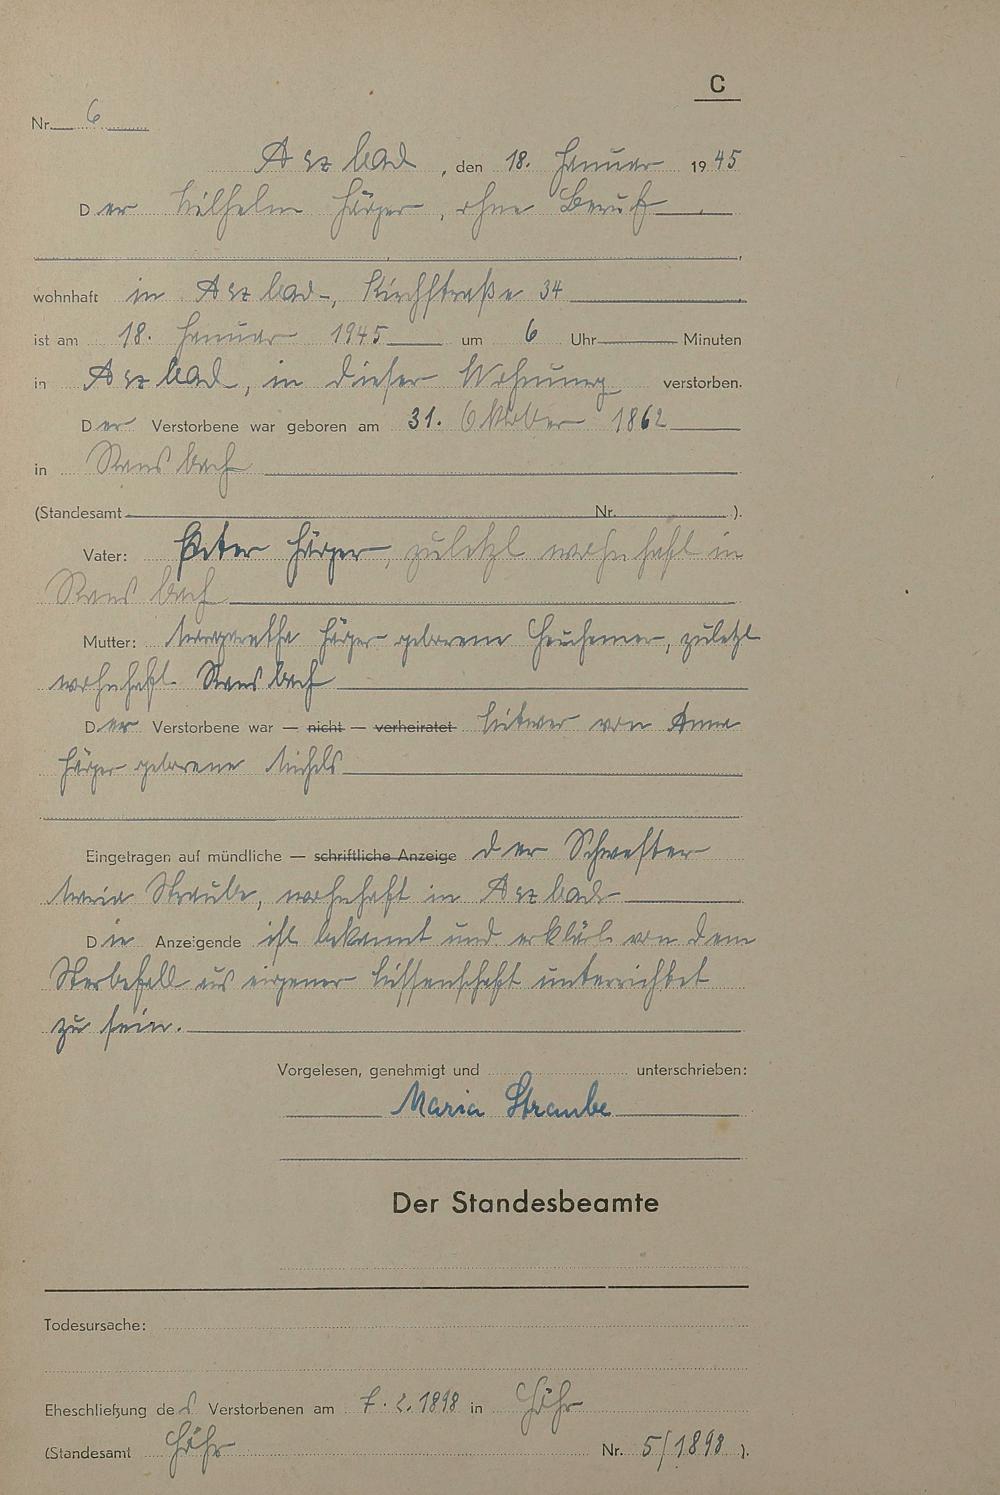 C
Nr. 6
Arzbach, den 18. Januar 1945
Der Wilhelm Härger, ohne Beruf
wohnhaft in Arzbach, Kirchstraße 34
ist am 18. Januar 1945 um 6 Uhr Minuten
in Arzbach, in dieser Wohnung verstorben.
Der Verstorbene war geboren am 31. Oktober 1862
in Ransbach
(Standesamt Nr. ).
Vater: Peter, zuletzt wohnhaft in
Ransbach
Mutter: Margaretha geborene, zuletzt
wohnhaft Ransbach
Der Verstorbene war — nicht — verheiratet Witwer von Anna
geborene Michels
Eingetragen auf mündliche — schriftliche Anzeige der Schwester
Maria Straube, wohnhaft in
Die Anzeigende ist bekannt und erklärt von dem
Sterbefall aus eigener Wissenschaft unterrichtet
zu sein.
Vorgelesen, genehmigt und unterschrieben:
Maria Straube
Der Standesbeamte
Todesursache:
Eheschließung des Verstorbenen am 7.2.1898 in Höhr
(Standesamt Höhr Nr. 5/1898 ).